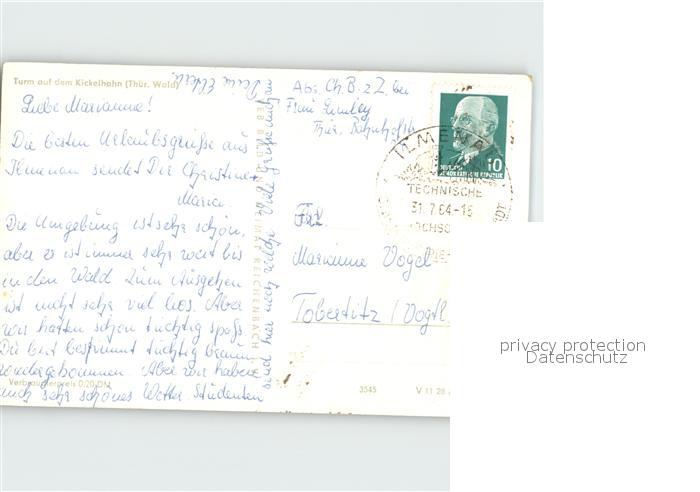 Turm auf dem Kickelhahn (Thür. Wald)
Liebe Marianne!
Die besten Urlaubsgrüße aus
Ilmenau sendet Dir Christine +
Maria.
Die Umgebung ist sehr schön,
aber es ist immer sehr weit bis
in den Wald. Zum Ausgehen
ist nicht sehr viel los. Aber
wir hatten schon tüchtig spaß.
Du bist bestimmt tüchtig braun
wiedergekommen. Aber wir haben
auch sehr schönes Wetter. Studenten
sind hier noch welche. Viele Grüße
Deine Eltern.
Verbraucherpreis 0,20 DM
BILD UND HEIMAT REICHENBACH
Abs. Ch. B. z Z. bei
Frau
Thür. Bahnhofstr.
DEUTSCHE
DEMOKRATISCHE REPUBLIK
10
ILMENAU
TECHNISCHE
31.7.64-16
HOCHSC
STADT
Frl.
Marianne Vogel
Tobertitz / Vogtl
3545
V 11 28
privacy protection
Datenschutz